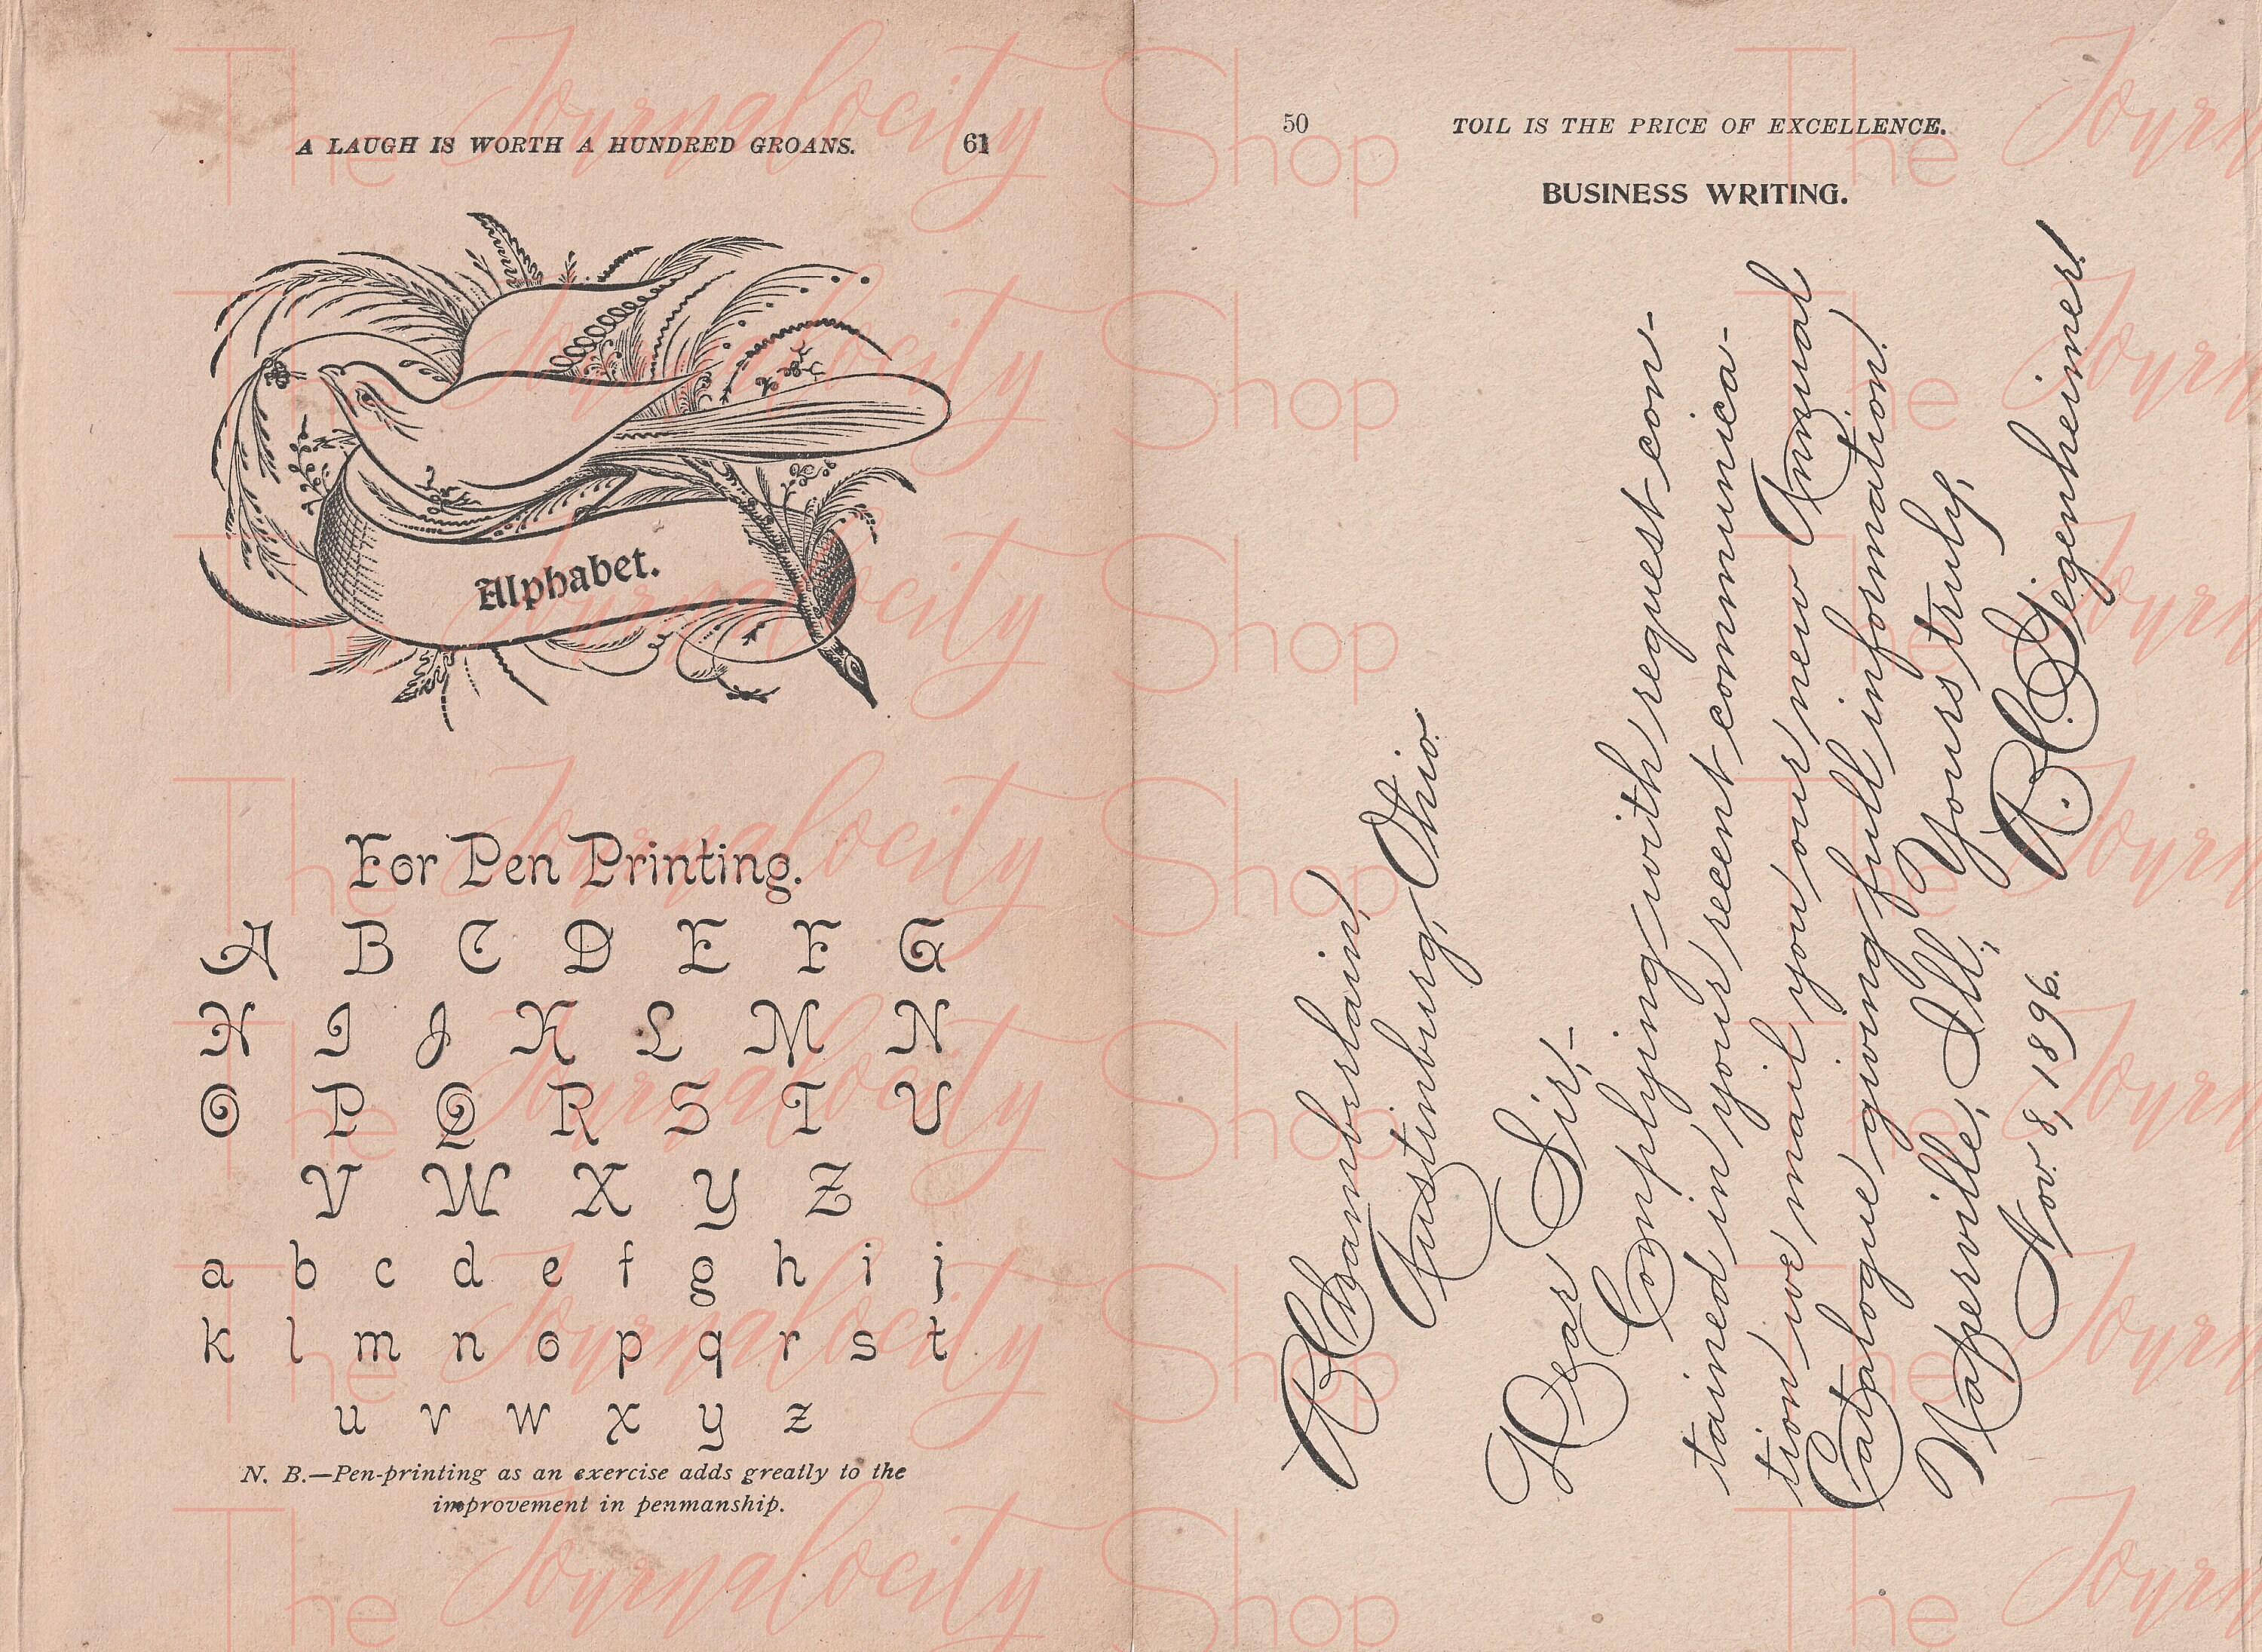 A LAUGH IS WORTH A HUNDRED GROANS. 61
Alphabet.
For Pen Printing.
A B C D E F G
H I J K L M N
O P Q R S T U
V W X Y Z
a b c d e f g h i j
k l m n o p q r s t
u v w x y z
N. B.—Pen-printing as an exercise adds greatly to the
improvement in penmanship.
50 TOIL IS THE PRICE OF EXCELLENCE.
BUSINESS WRITING.
Chamberlain,
Austinburg, Ohio.
Dear Sir,-
Complying with request con-
tained in your recent communica-
tion we mail you our new Annual
Catalogue giving full information.
Yours truly,
Naperville, Ill.,
Nov. 8, 1896.
The Journalocity Shop